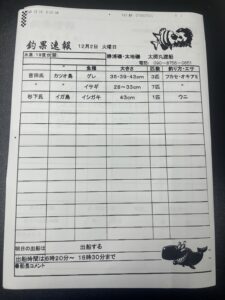 釣果速報 12月2日 火曜日
勝浦磯・太地磯
魚種 大きさ 匹数 釣り方・エサ
カツオ島 グレ 35-39-43cm 3匹 フカセ・オキアミ
イサギ 28～33cm 7匹
杉下氏 イガ島 イシガキ 43cm 1匹 ウニ
明日の出船は 出船する
出船時間は6時20分～ 16時30分まで
●船長コメント